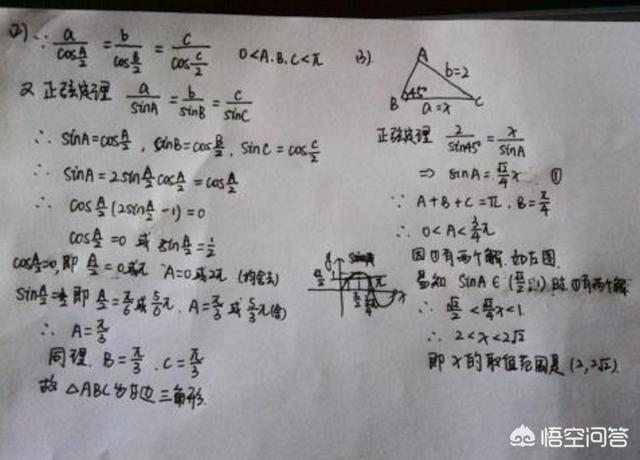 2) ∵ a/cos A/2 = b/cos B/2 = c/cos C/2 0<A.B.C<π
又 正弦定理 a/sinA = b/sinB = c/sinC
∴ sinA=cos A/2, sinB=cos B/2, sinC=cos C/2
∴ sinA=2sin A/2 cos A/2 = cos A/2
∴ cos A/2 (2sin A/2 -1)=0
cos A/2 =0 或 sin A/2 = 1/2
cos A/2=0, 即 A/2 = 0或π A=0或2π (均舍去)
sin A/2 = 1/2 即 A/2 = π/6 或 5/6 π. A= π/3 或 5/3 π(舍)
∴ A= π/3
同理. B= π/3. C= π/3
故 △ABC为等边三角形.
3).
A
b=2
B 45° C
a=x
正弦定理 2/sin45° = x/sinA
⇒ sinA= √2/4 x ①
∵ A+B+C=π. B= π/4
∴ 0<A< 3/4 π
因①有两个解. 如左图.
易知 sinA∈(√2/2, 1) 时. ①有两个解
∴ √2/2 < √2/4 x<1
∴ 2<x<2√2
即 x的取值范围是 (2, 2√2).
y
sinA
√2/2
π
x
悟空问答